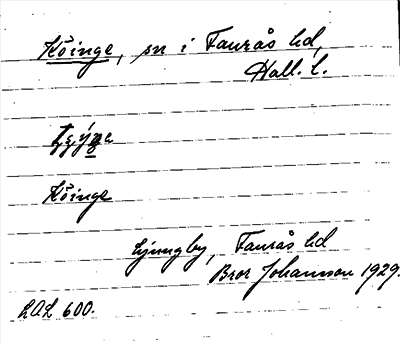 Köinge, sn i Faurås hd,
Hall. l.
Köinge
Ljungby, Faurås hd
Bror Johansson 1929.
LAL 600.